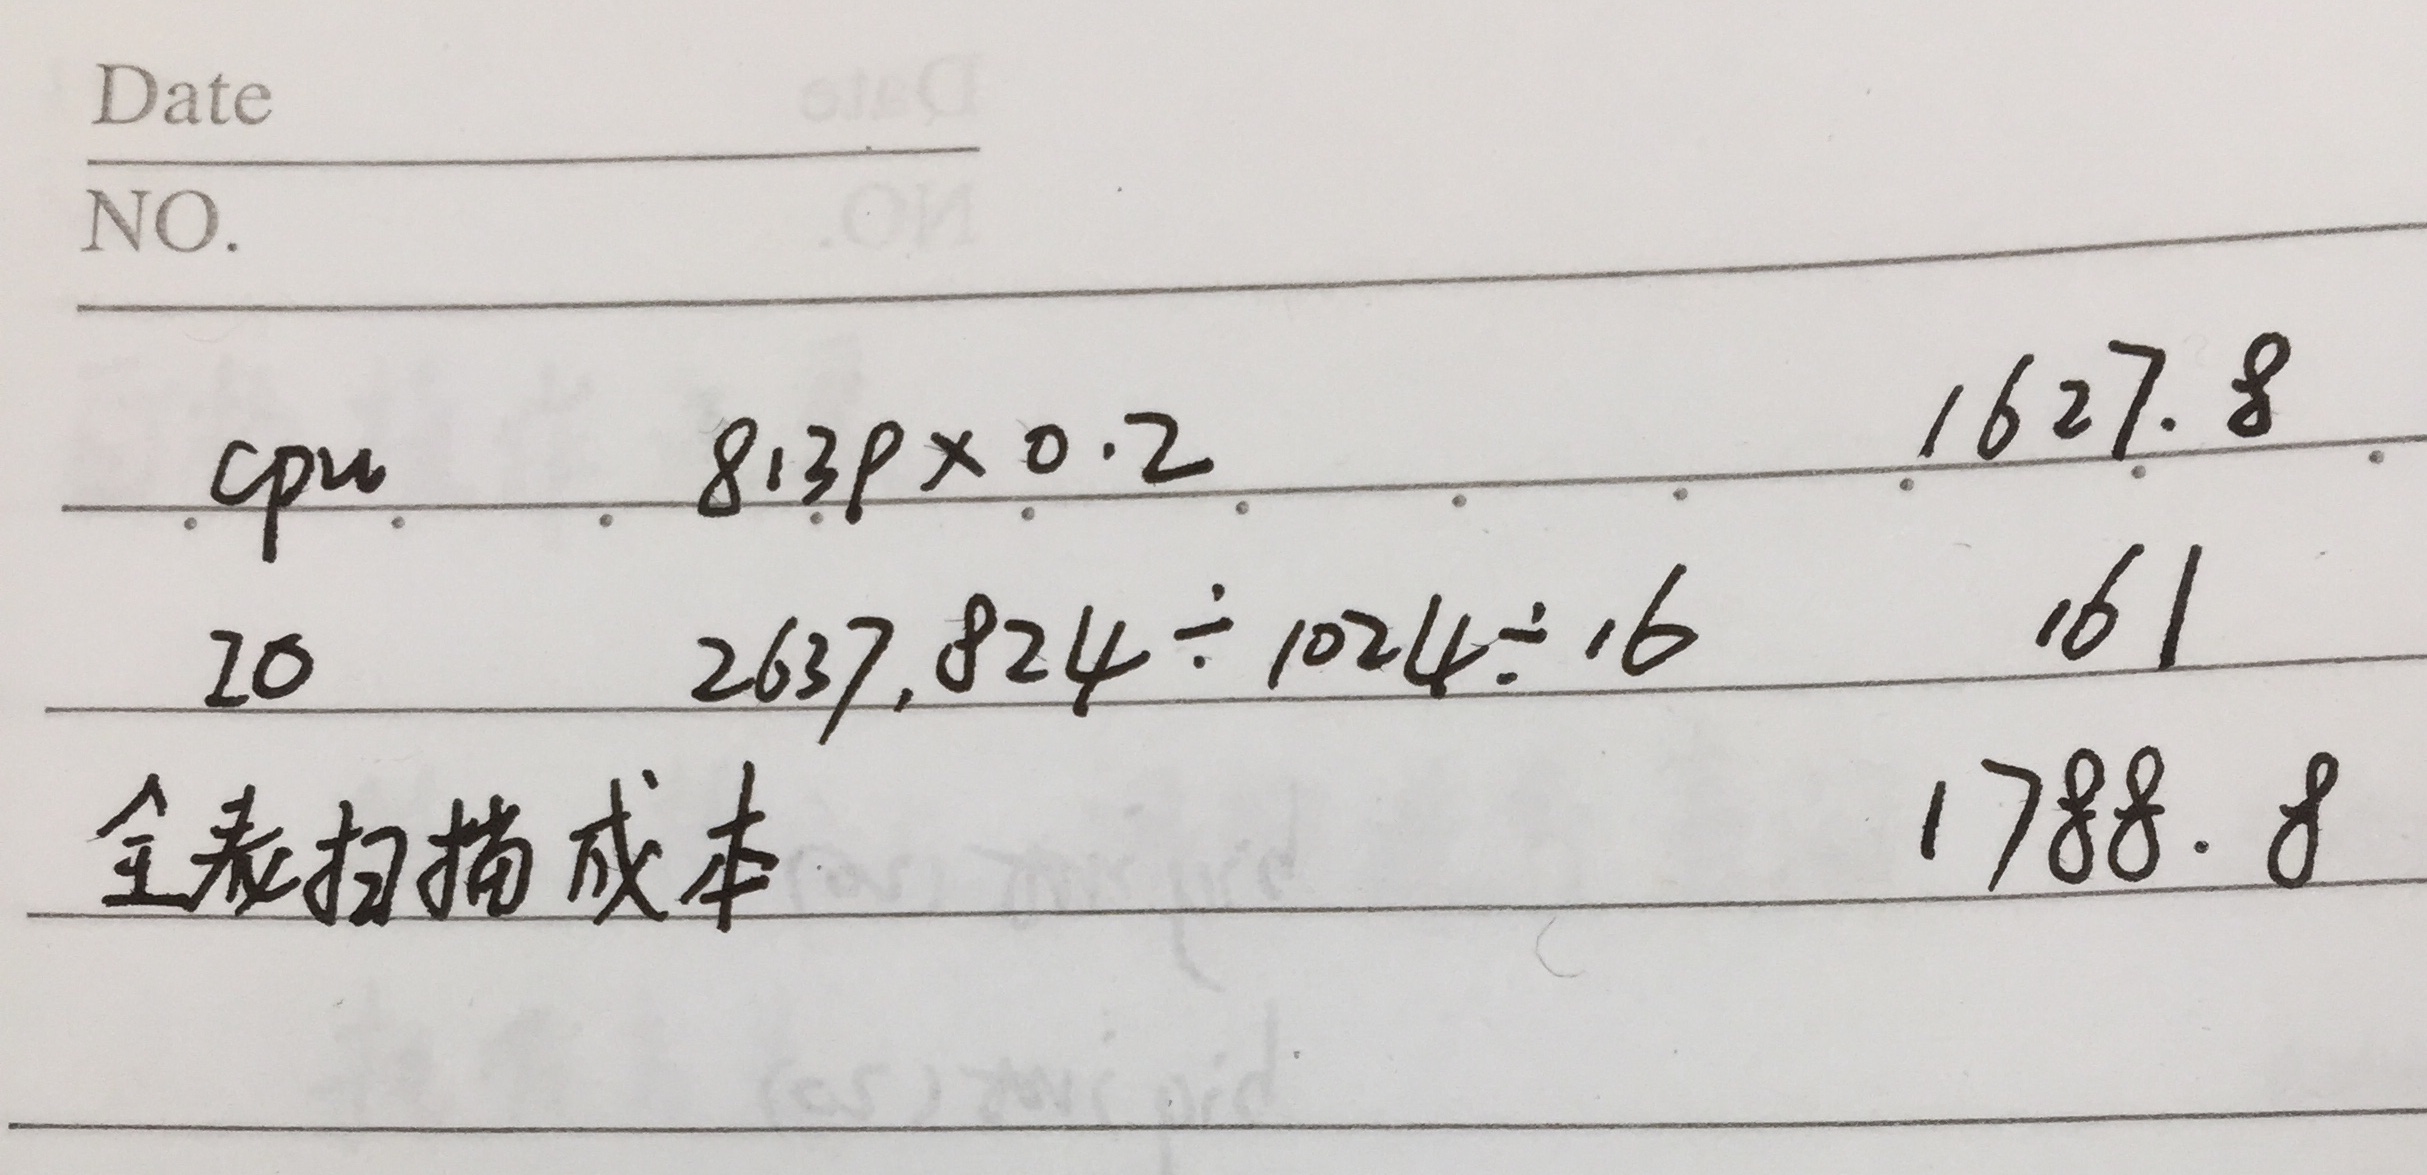 Date
NO.
cpu 8139 × 0.2 1627.8
IO 2637,824 ÷ 1024 ÷ 16 161
全表扫描成本 1788.8